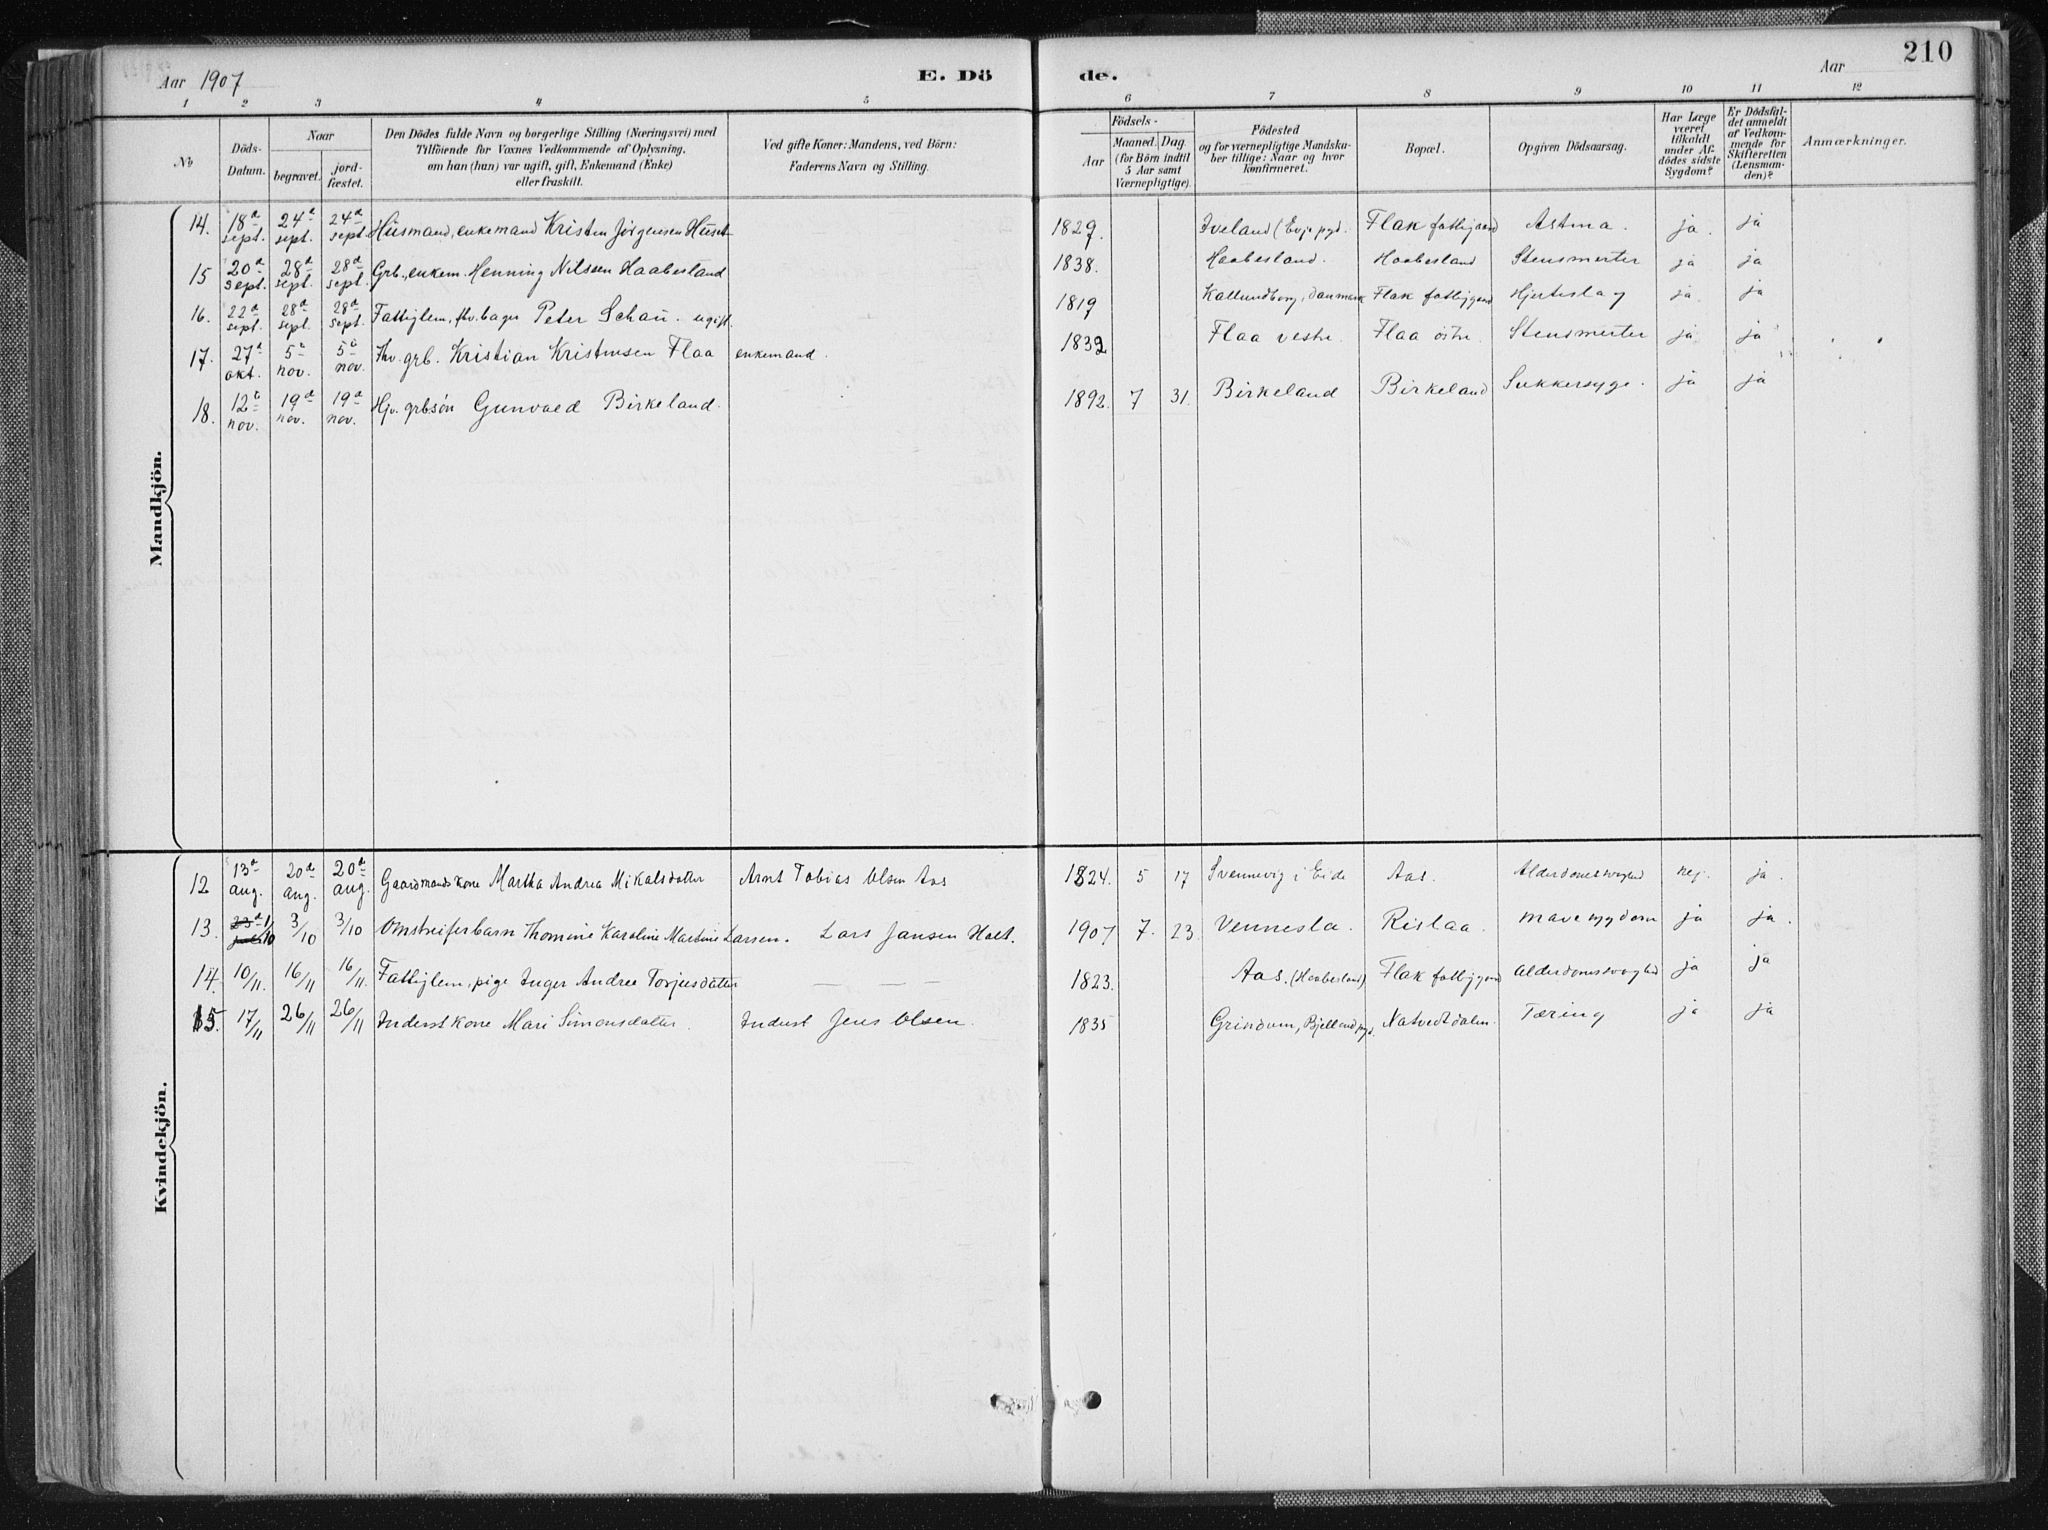 Aar 1907 E. Dö de. Aar 210
1 2 3 4 5 6 7 8 9 10 11 12
No Döds-Datum. Naar begravet. jord-fæstet. Den Dödes fulde Navn og borgerlige Stilling (Næringsvei) med Tilföiende for Voxnes Vedkommende af Oplysning, om han (hun) var ugift, gift, Enkemand (Enke) eller fraskilt. Ved gifte Koner: Mandens, ved Börn: Faderens Navn og Stilling. Födsels- Aar Maaned. Dag. (for Börn indtil 5 Aar samt Værnepligtige). Födested og for værnepligtige Mandskaber tillige: Naar og hvor konfirmeret. Bopæl. Opgiven Dödsaarsag. Har Læge været tilkaldt under Afdödes sidste Sygdom? Er Dödsfaldet anmeldt af Vedkommende for Skifteretten (Lensmanden)? Anmærkninger.
Mandkjön.
14. 18d sept. 24d sept. 24d sept. Husmand, enkemand Kristen Jörgensen Huset 1829. Iveland (Evje pgd. Flak fattiggaard Astma. ja. ja
15 20d sept. 28d sept. 28d sept. Grb., enkem. Henning Nilssen Haabesland 1838. Haabesland. Haabesland Stensmerter ja ja
16. 22d sept. 28d sept. 28d sept. Fattiglem, fhv. bager Peter Schau. ugift. 1819 Kallundborg, Danmark Flak fattiggaard Hjerteslag ja. ja
17. 27d okt. 5d nov. 5d nov. Fhv. grb. Kristian Kristensen Flaa enkemand. 1832 Flaa vestre Flaa östre. Stensmerter ja ja
18. 12d nov. 19d nov. 19d nov. Hjv. grbsön Gunvald Birkeland. 1892. 7 31. Birkeland Birkeland Sukkersyge. ja ja
Kvindekjön.
12 13d aug. 20d aug. 20d aug. Gaardmandskone Martha Andrea Mikalsdatter Arnt Tobias Olsen Aas 1824. 5 17 Svennevig i Eide Aas. Alderdomssvaghed nej. ja.
13. 1/10 3/10 3/10 Omstreiferbarn Thomine Karoline Martine Larsen. Lars Jansen Holt. 1907 7. 23. Vennesla. Rislaa. Mavesygdom ja ja.
14. 10/11. 16/11 16/11. Fattiglem, pige Inger Andrea Torjusdatter — — — 1823. Aas. (Haabesland) Flak fattiggaard Alderdomssvaghed ja ja
15. 17/11 26/11 26/11 Inderst kone Mari Simonsdatter. Inderst Jens Olsen. 1835 Grindum, Bjelland pgd. Natvedtdalen. Tæring ja ja